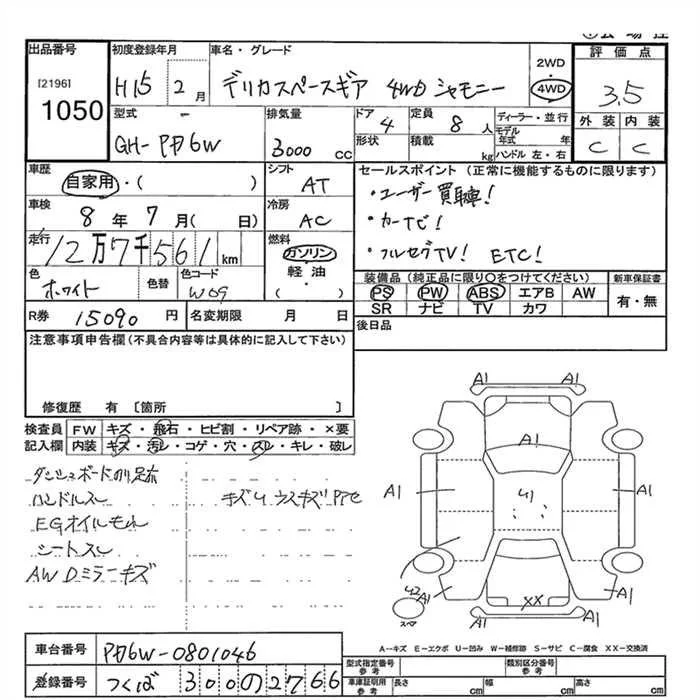 出品番号
[2196]
1050
初度登録年月
H15 2月
車名・グレード
デリカスペースギア 4WD シャモニー
2WD
・
4WD
評価点
3.5
外装 内装
C C
型式
GH-PF6W
排気量
3000 cc
ドア
4
形状
定員
8人
積載
kg
ディーラー・並行
モデル年式 年
ハンドル 左・右
車歴
自家用・( )
シフト
AT
車検
8年 7月( 日)
冷房
AC
走行
12万7千561km
燃料
ガソリン
・
軽油
・
( )
色
ホワイト
色替
色コード
W09
R券 15090円
名変期限 月 日
セールスポイント (正常に機能するものに限ります)
・ユーザー買取車!
・カーナビ!
・フルセグTV! ETC!
装備品 (純正品に限り○をつけてください)
PS PW ABS エアB AW
SR ナビ TV カワ
新車保証書
有・無
後日品
注意事項申告欄 (不具合内容等は具体的に記入して下さい)
修復歴 有 〔箇所 〕
検査員記入欄
FW キズ・飛石・ヒビ割・リペア跡・×要
内装 キズ・汚レ・コゲ・穴・スレ・キレ・破レ
ハンドルスレ
キズUウスキズ
EGオイルモレ
シートスレ
AWDミラーキズ
A1 A1
A1
A1 U1 A1
A1
A1
XX
スペア
A1 A1
A-キズ E-エクボ U-凹み W-補修跡 S-サビ C-腐食 XX-交換済
車台番号 PF6W-0801046
登録番号 つくば 300 の 2766
型式指定番号
参考
類別区分番号
参考
車庫証明用
参考
長さ cm 幅 cm 高さ cm